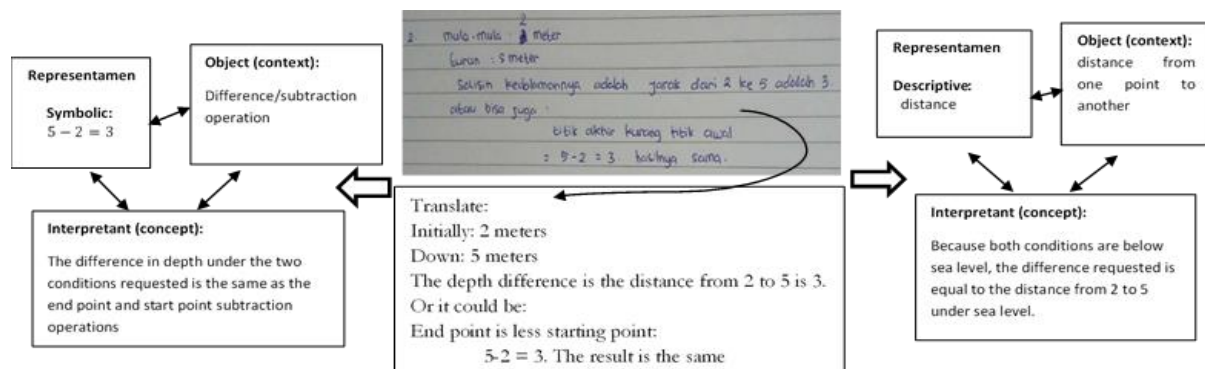 Representamen
Symbolic:
5 − 2 = 3
Object (context):
Difference/subtraction
operation
Interpretant (concept):
The difference in depth under the two
conditions requested is the same as the
end point and start point subtraction
operations
2
2. mula-mula : meter
turun : 5 meter
Selisih kedalamannya adalah jarak dari 2 ke 5 adalah 3.
atau bisa juga :
titik akhir kurang titik awal
= 5-2 = 3 hasilnya sama.
Translate:
Initially: 2 meters
Down: 5 meters
The depth difference is the distance from 2 to 5 is 3.
Or it could be:
End point is less starting point:
5-2 = 3. The result is the same
Representamen
Descriptive:
distance
Object (context):
distance from
one point to
another
Interpretant (concept):
Because both conditions are below
sea level, the difference requested is
equal to the distance from 2 to 5
under sea level.